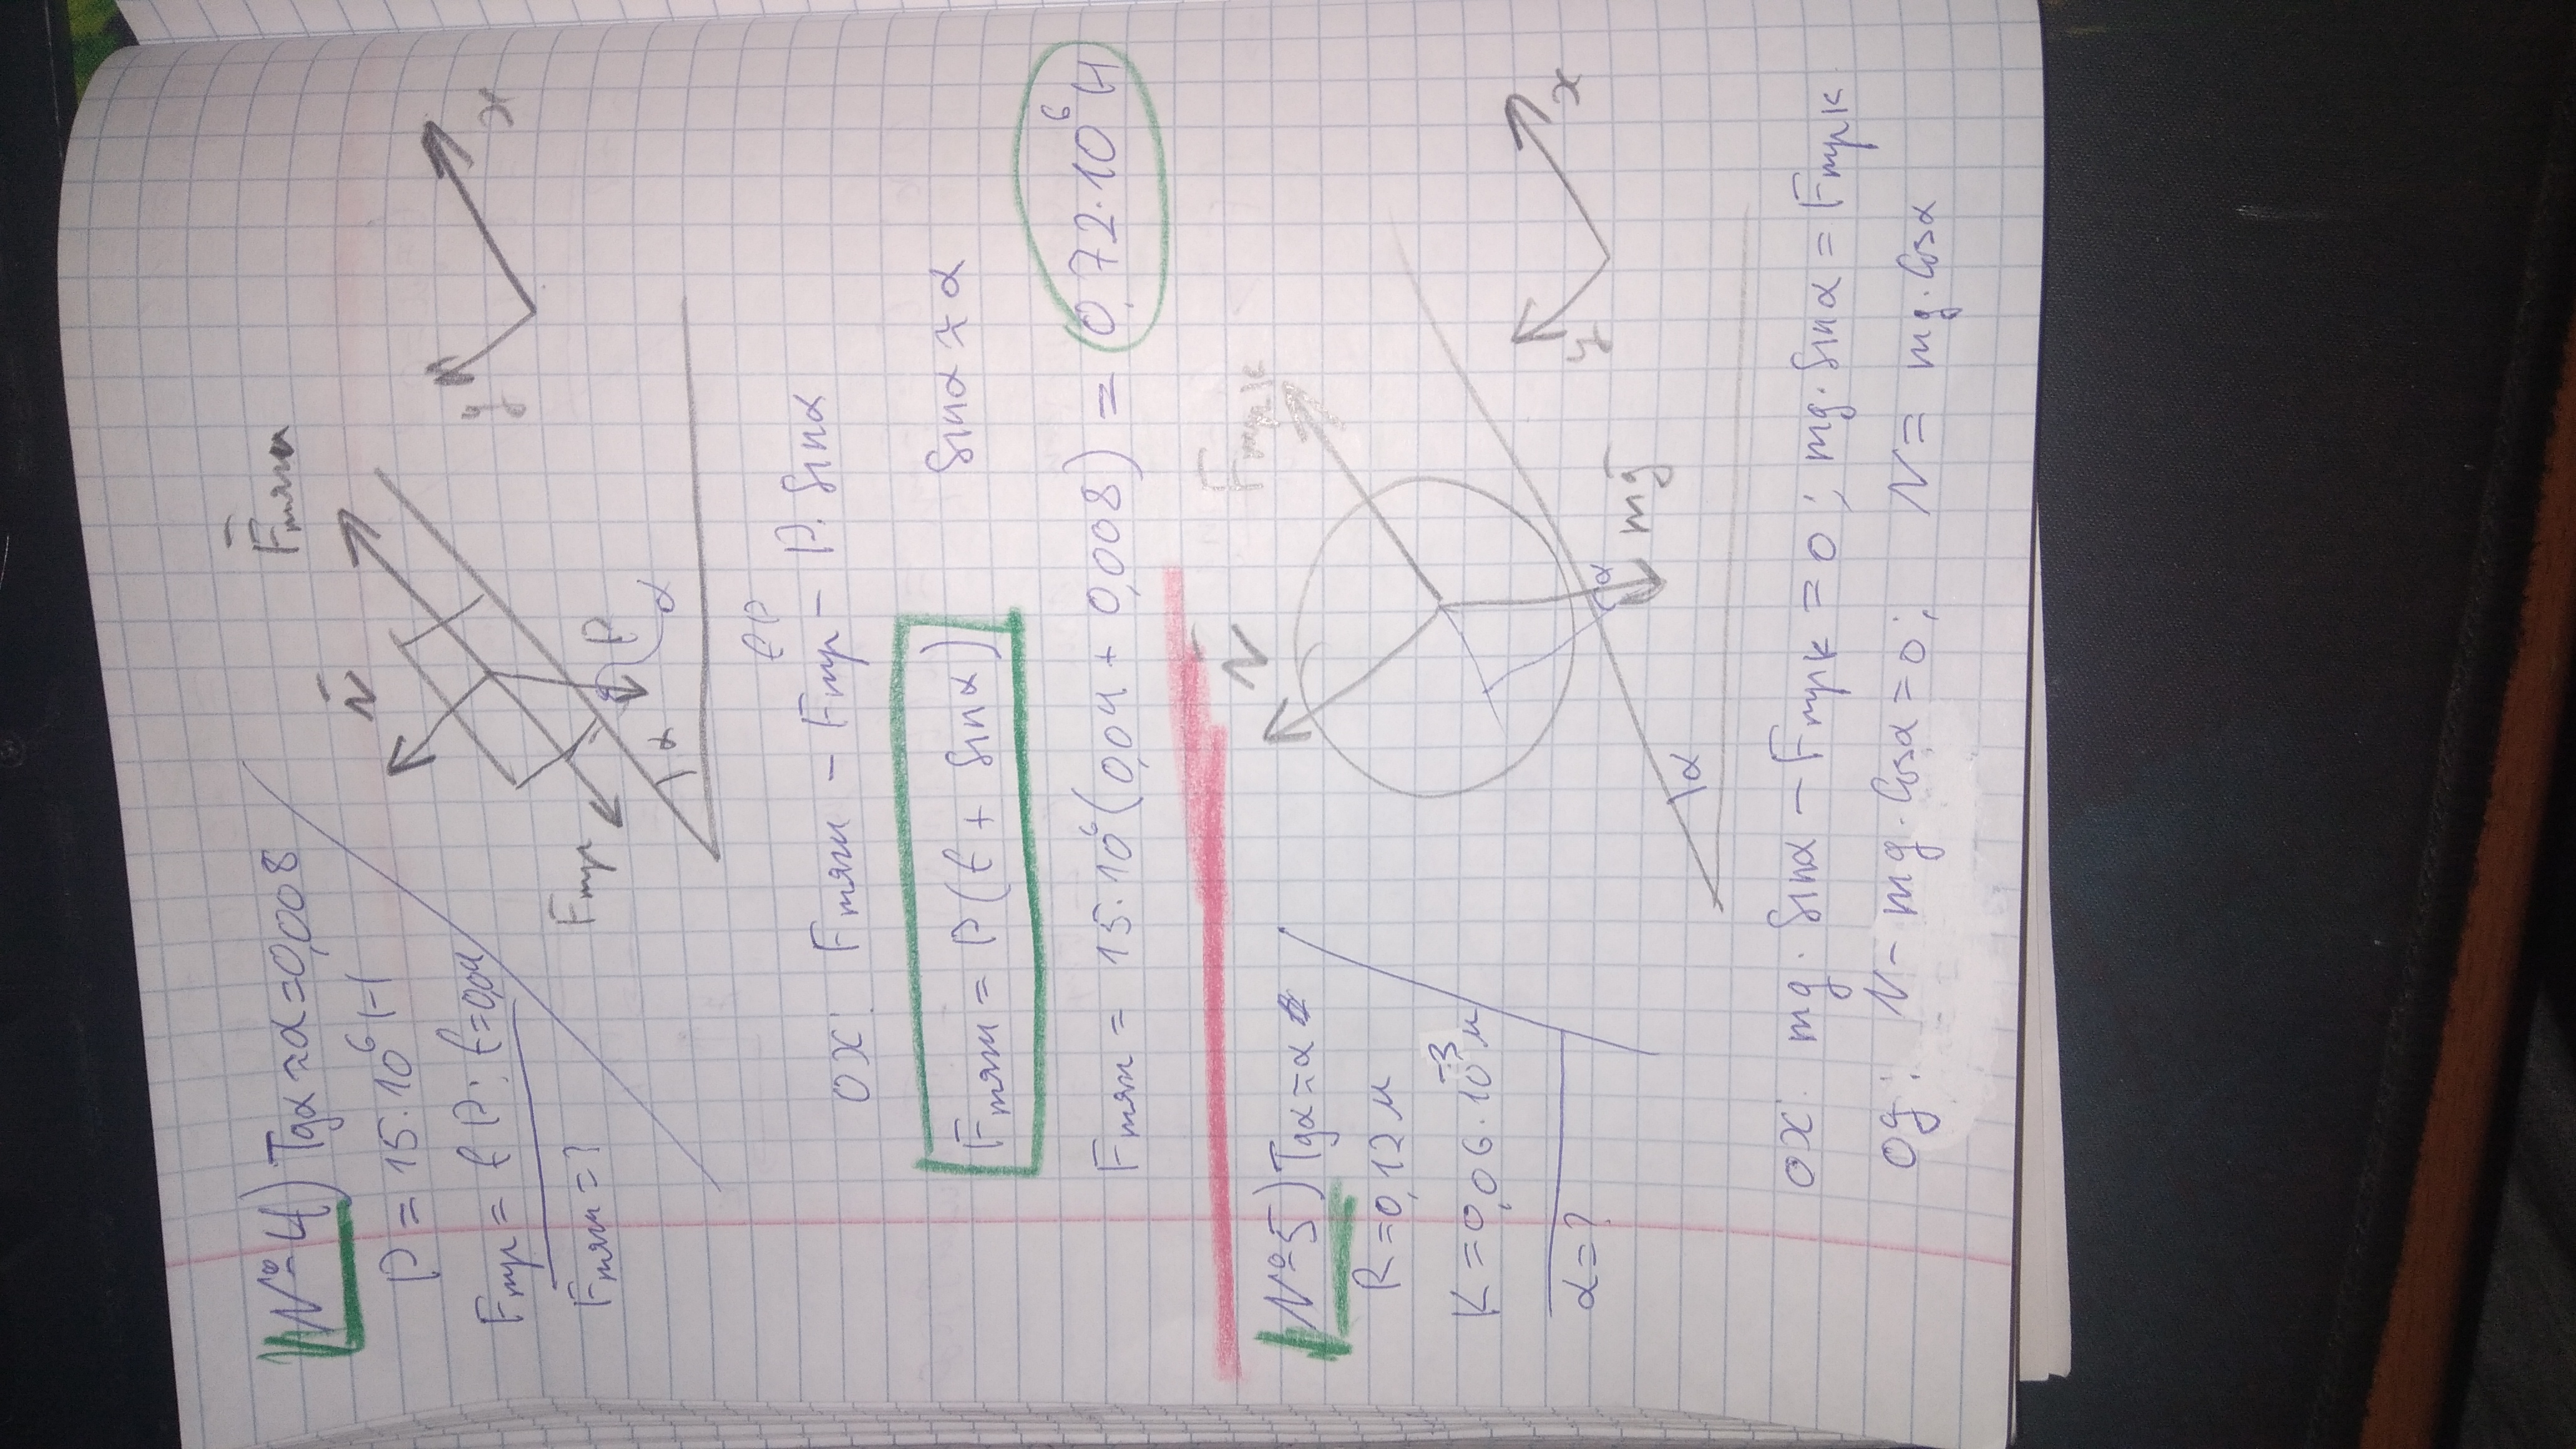 №4) Tgα ≈ α = 0,008
P = 15·10⁶ Н
Fтр = fP; f=0,04
Fтяги = ?
N̄
F̄тяги
Fтр
P
α
α
y
x
fP
OX: Fтяги - Fтр - P·Sinα
Fтяги = P(f + Sinα)
Sinα ≈ α
Fтяги = 15·10⁶(0,04 + 0,008) = 0,72·10⁶ Н
№5) Tgα ≈ α
R = 0,12 м
K = 0,06·10⁻³ м
α = ?
N̄
Fтр к
mḡ
α
α
y
x
OX: mg·Sinα - Fтр к = 0; mg·Sinα = Fтр к
Oy: N - mg·Cosα = 0; N = mg·Cosα